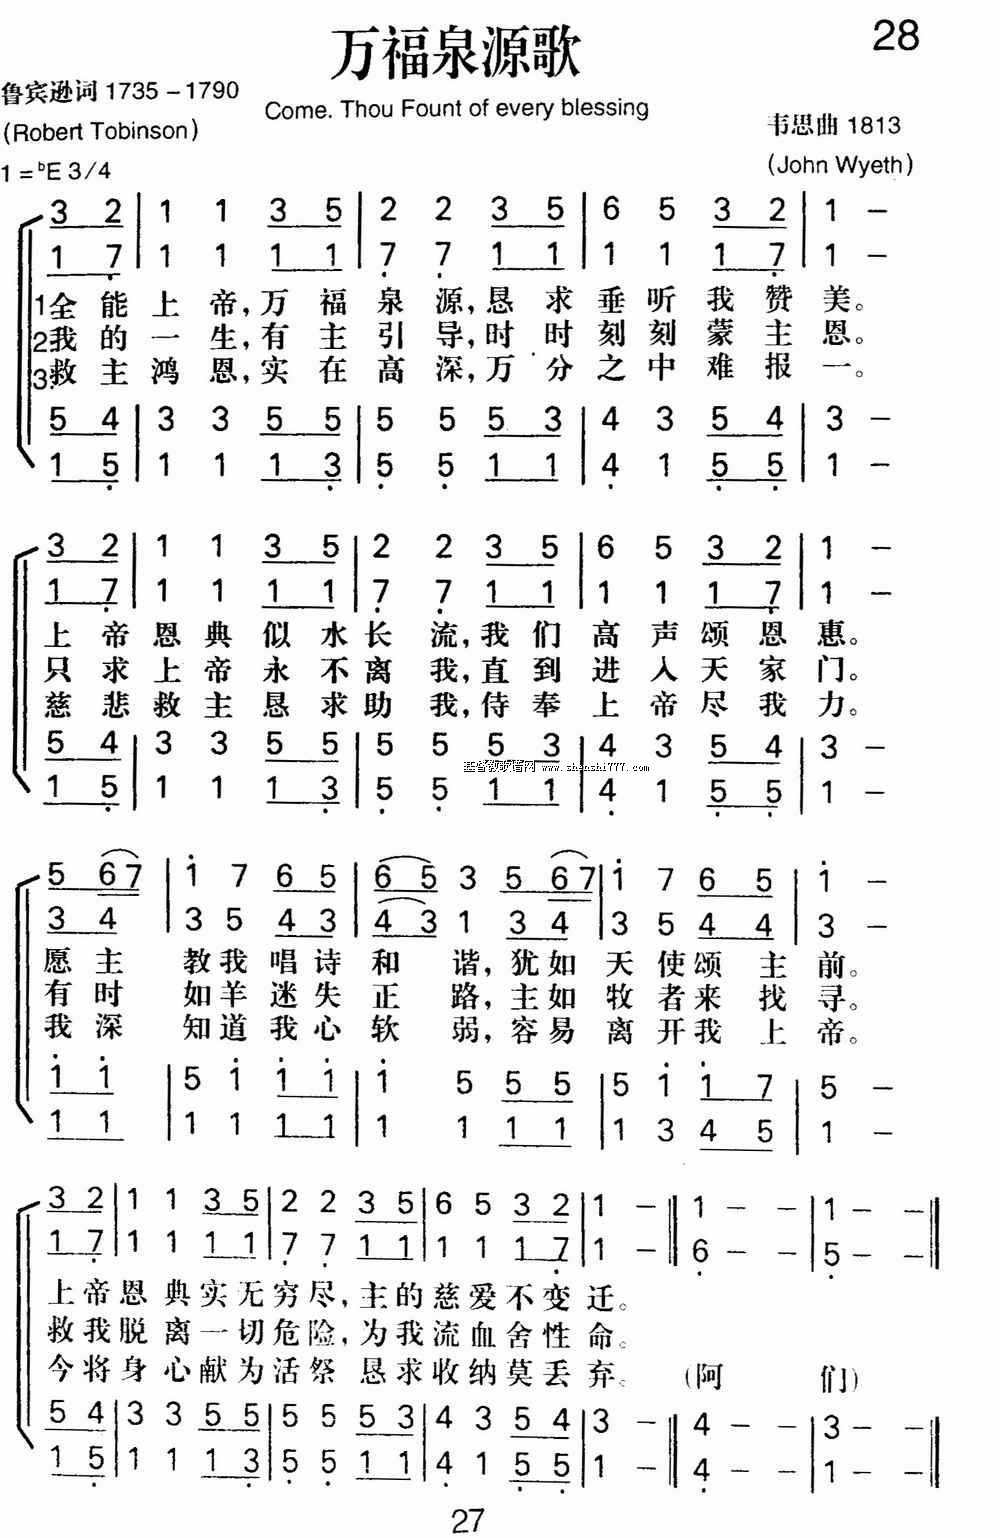 万福泉源歌
28
鲁宾逊词 1735 – 1790
Come. Thou Fount of every blessing
(Robert Tobinson)
韦思曲 1813
(John Wyeth)
1 = ᵇE 3/4
3 2 | 1 1 3 5 | 2 2 3 5 | 6 5 3 2 | 1 –
1 7̣ | 1 1 1 1 | 7̣ 7̣ 1 1 | 1 1 1 7̣ | 1 –
1 全能上帝,万福泉源,恳求垂听我赞美。
2 我的一生,有主引导,时时刻刻蒙主恩。
3. 救主鸿恩,实在高深,万分之中难报一。
5 4 | 3 3 5 5 | 5 5 5 3 | 4 3 5 4 | 3 –
1 5̣ | 1 1 1 3̣ | 5̣ 5̣ 1 1 | 4̣ 1 5̣ 5̣ | 1 –
3 2 | 1 1 3 5 | 2 2 3 5 | 6 5 3 2 | 1 –
1 7̣ | 1 1 1 1 | 7̣ 7̣ 1 1 | 1 1 1 7̣ | 1 –
上帝恩典似水长流,我们高声颂恩惠。
只求上帝永不离我,直到进入天家门。
慈悲救主恳求助我,侍奉上帝尽我力。
5 4 | 3 3 5 5 | 5 5 5 3 | 4 3 5 4 | 3 –
基督教歌谱网 www.shenshi777.com
1 5̣ | 1 1 1 3̣ | 5̣ 5̣ 1 1 | 4̣ 1 5̣ 5̣ | 1 –
5 6 7 | 1̇ 7 6 5 | 6 5 3 5 6 7 | 1̇ 7 6 5 | 1̇ –
3 4 | 3 5 4 3 | 4 3 1 3 4 | 3 5 4 4 | 3 –
愿主教我唱诗和谐,犹如天使颂主前。
有时如羊迷失正路,主如牧者来找寻。
我深知道我心软弱,容易离开我上帝。
1̇ 1̇ | 5 1̇ 1̇ 1̇ | 1̇ 5 5 5 | 5 1̇ 1̇ 7 | 5 –
1 1 | 1 1 1 1 | 1 1 1 1 | 1 3 4 5 | 1 –
3 2 | 1 1 3 5 | 2 2 3 5 | 6 5 3 2 | 1 – ‖ 1 – – | 1 – – ‖
1 7̣ | 1 1 1 1 | 7̣ 7̣ 1 1 | 1 1 1 7̣ | 1 – ‖ 6̣ – – | 5̣ – – ‖
上帝恩典实无穷尽,主的慈爱不变迁。
救我脱离一切危险,为我流血舍性命。
今将身心献为活祭 恳求收纳莫丢弃。 (阿 们)
5 4 | 3 3 5 5 | 5 5 5 3 | 4 3 5 4 | 3 – ‖ 4 – – | 3 – – ‖
1 5̣ | 1 1 1 3̣ | 5̣ 5̣ 1 1 | 4̣ 1 5̣ 5̣ | 1 – ‖ 4̣ – – | 1 – – ‖
27